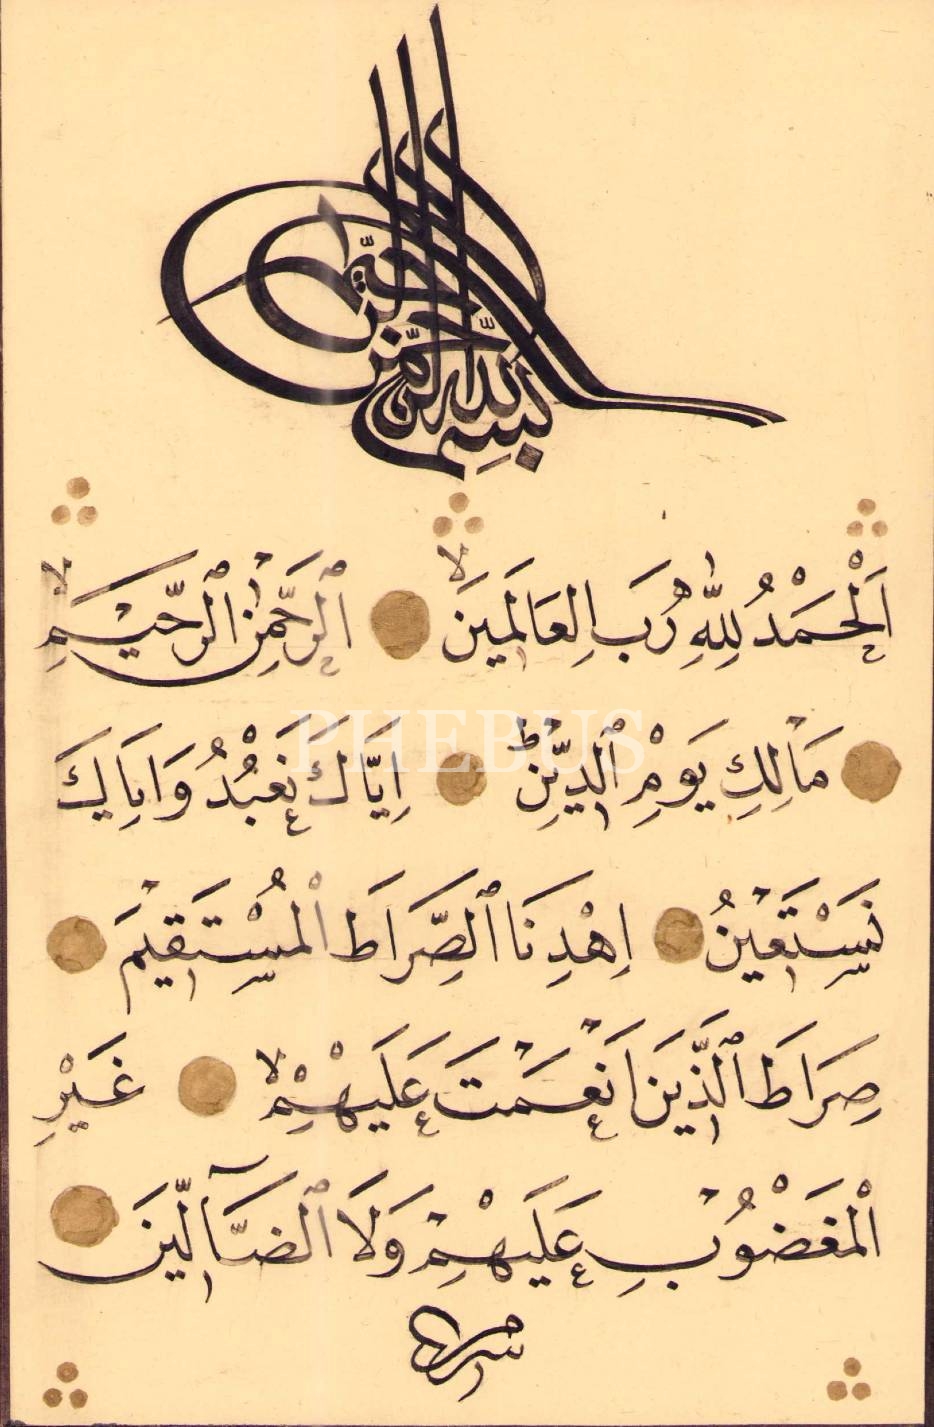 بِسْمِ اللّٰهِ الرَّحْمٰنِ الرَّحِيمِ
اَلْحَمْدُ لِلّٰهِ رَبِّ الْعَالَمِينَ ۙ اَلرَّحْمٰنِ الرَّحِيمِ ۙ
مَالِكِ يَوْمِ الدِّينِ ۜ اِيَّاكَ نَعْبُدُ وَاِيَاكَ
نَسْتَعِينُ اِهْدِنَا الصِّرَاطَ الْمُسْتَقِيمَ
صِرَاطَ الَّذِينَ اَنْعَمْتَ عَلَيْهِمْ ۙ غَيْرِ
الْمَغْضُوبِ عَلَيْهِمْ وَلَا الضَّآلِّينَ
PHEBUS